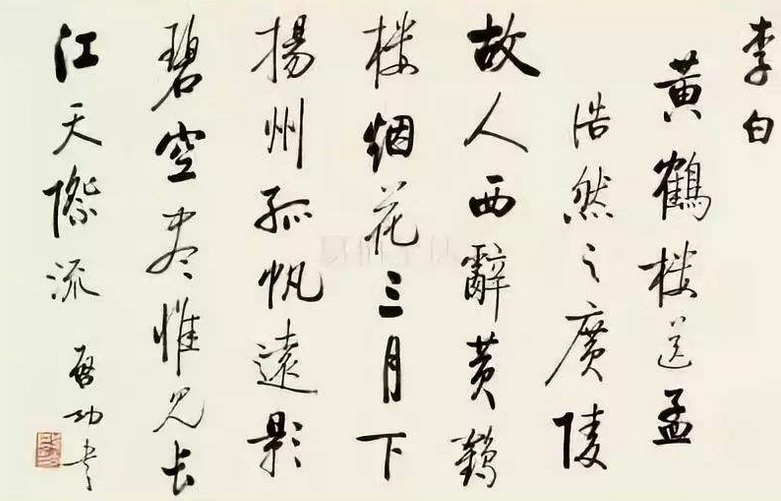 李白
黄鶴楼送孟
浩然之廣陵
故人西辭黄鶴
楼烟花三月下
揚州孤帆遠影
碧空尽惟见长
江天際流
启功书